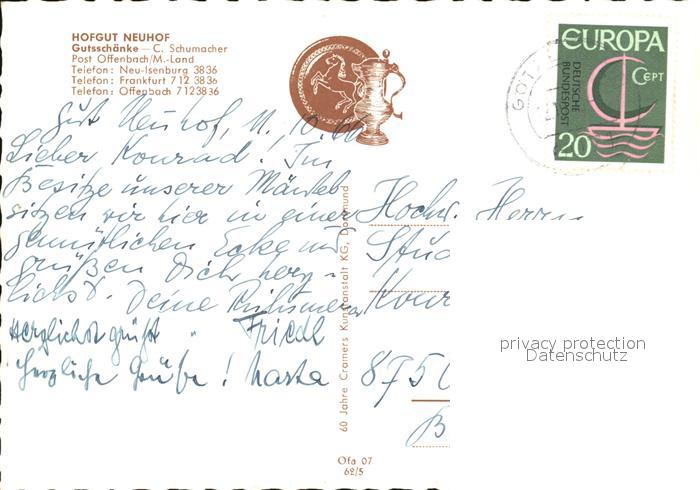 HOFGUT NEUHOF
Gutsschänke — C. Schumacher
Post Offenbach/M.-Land
Telefon: Neu-Isenburg 3836
Telefon: Frankfurt 7 12 3836
Telefon: Offenbach 7123836
Gut Neuhof, 11. 10. 66
Lieber Konrad! Im
Besitze unserer Mäntel
sitzen wir hier in einer
gemütlichen Ecke und
grüßen Dich herz-
lichst. Deine
Herzlichst grüßt Friedl
Herzliche Grüße! Marta
60 Jahre Cramers Kunstanstalt KG, Dortmund
Ofa 07
62/5
EUROPA
CEPT
DEUTSCHE
BUNDESPOST
20
GOTZ
Hochw. Herrn
Stud
Konr
875
B
privacy protection
Datenschutz